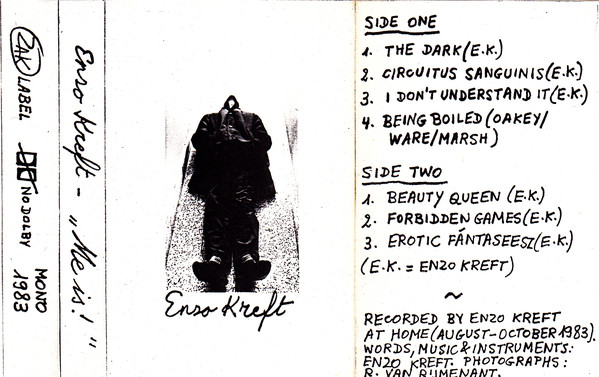 ZAK LABEL
NO DOLBY
MONO
1983
Enzo Kreft - „Me is!"
Enzo Kreft
SIDE ONE
1. THE DARK (E.K.)
2. CIRCUITUS SANGUINIS (E.K.)
3. I DON'T UNDERSTAND IT (E.K.)
4. BEING BOILED (OAKEY/
WARE/MARSH)
SIDE TWO
1. BEAUTY QUEEN (E.K.)
2. FORBIDDEN GAMES (E.K.)
3. EROTIC FÁNTASEESZ (E.K.)
(E.K. = ENZO KREFT)
~
RECORDED BY ENZO KREFT
AT HOME (AUGUST-OCTOBER 1983).
WORDS, MUSIC & INSTRUMENTS:
ENZO KREFT. PHOTOGRAPHS:
R. VAN RIJMENANT.